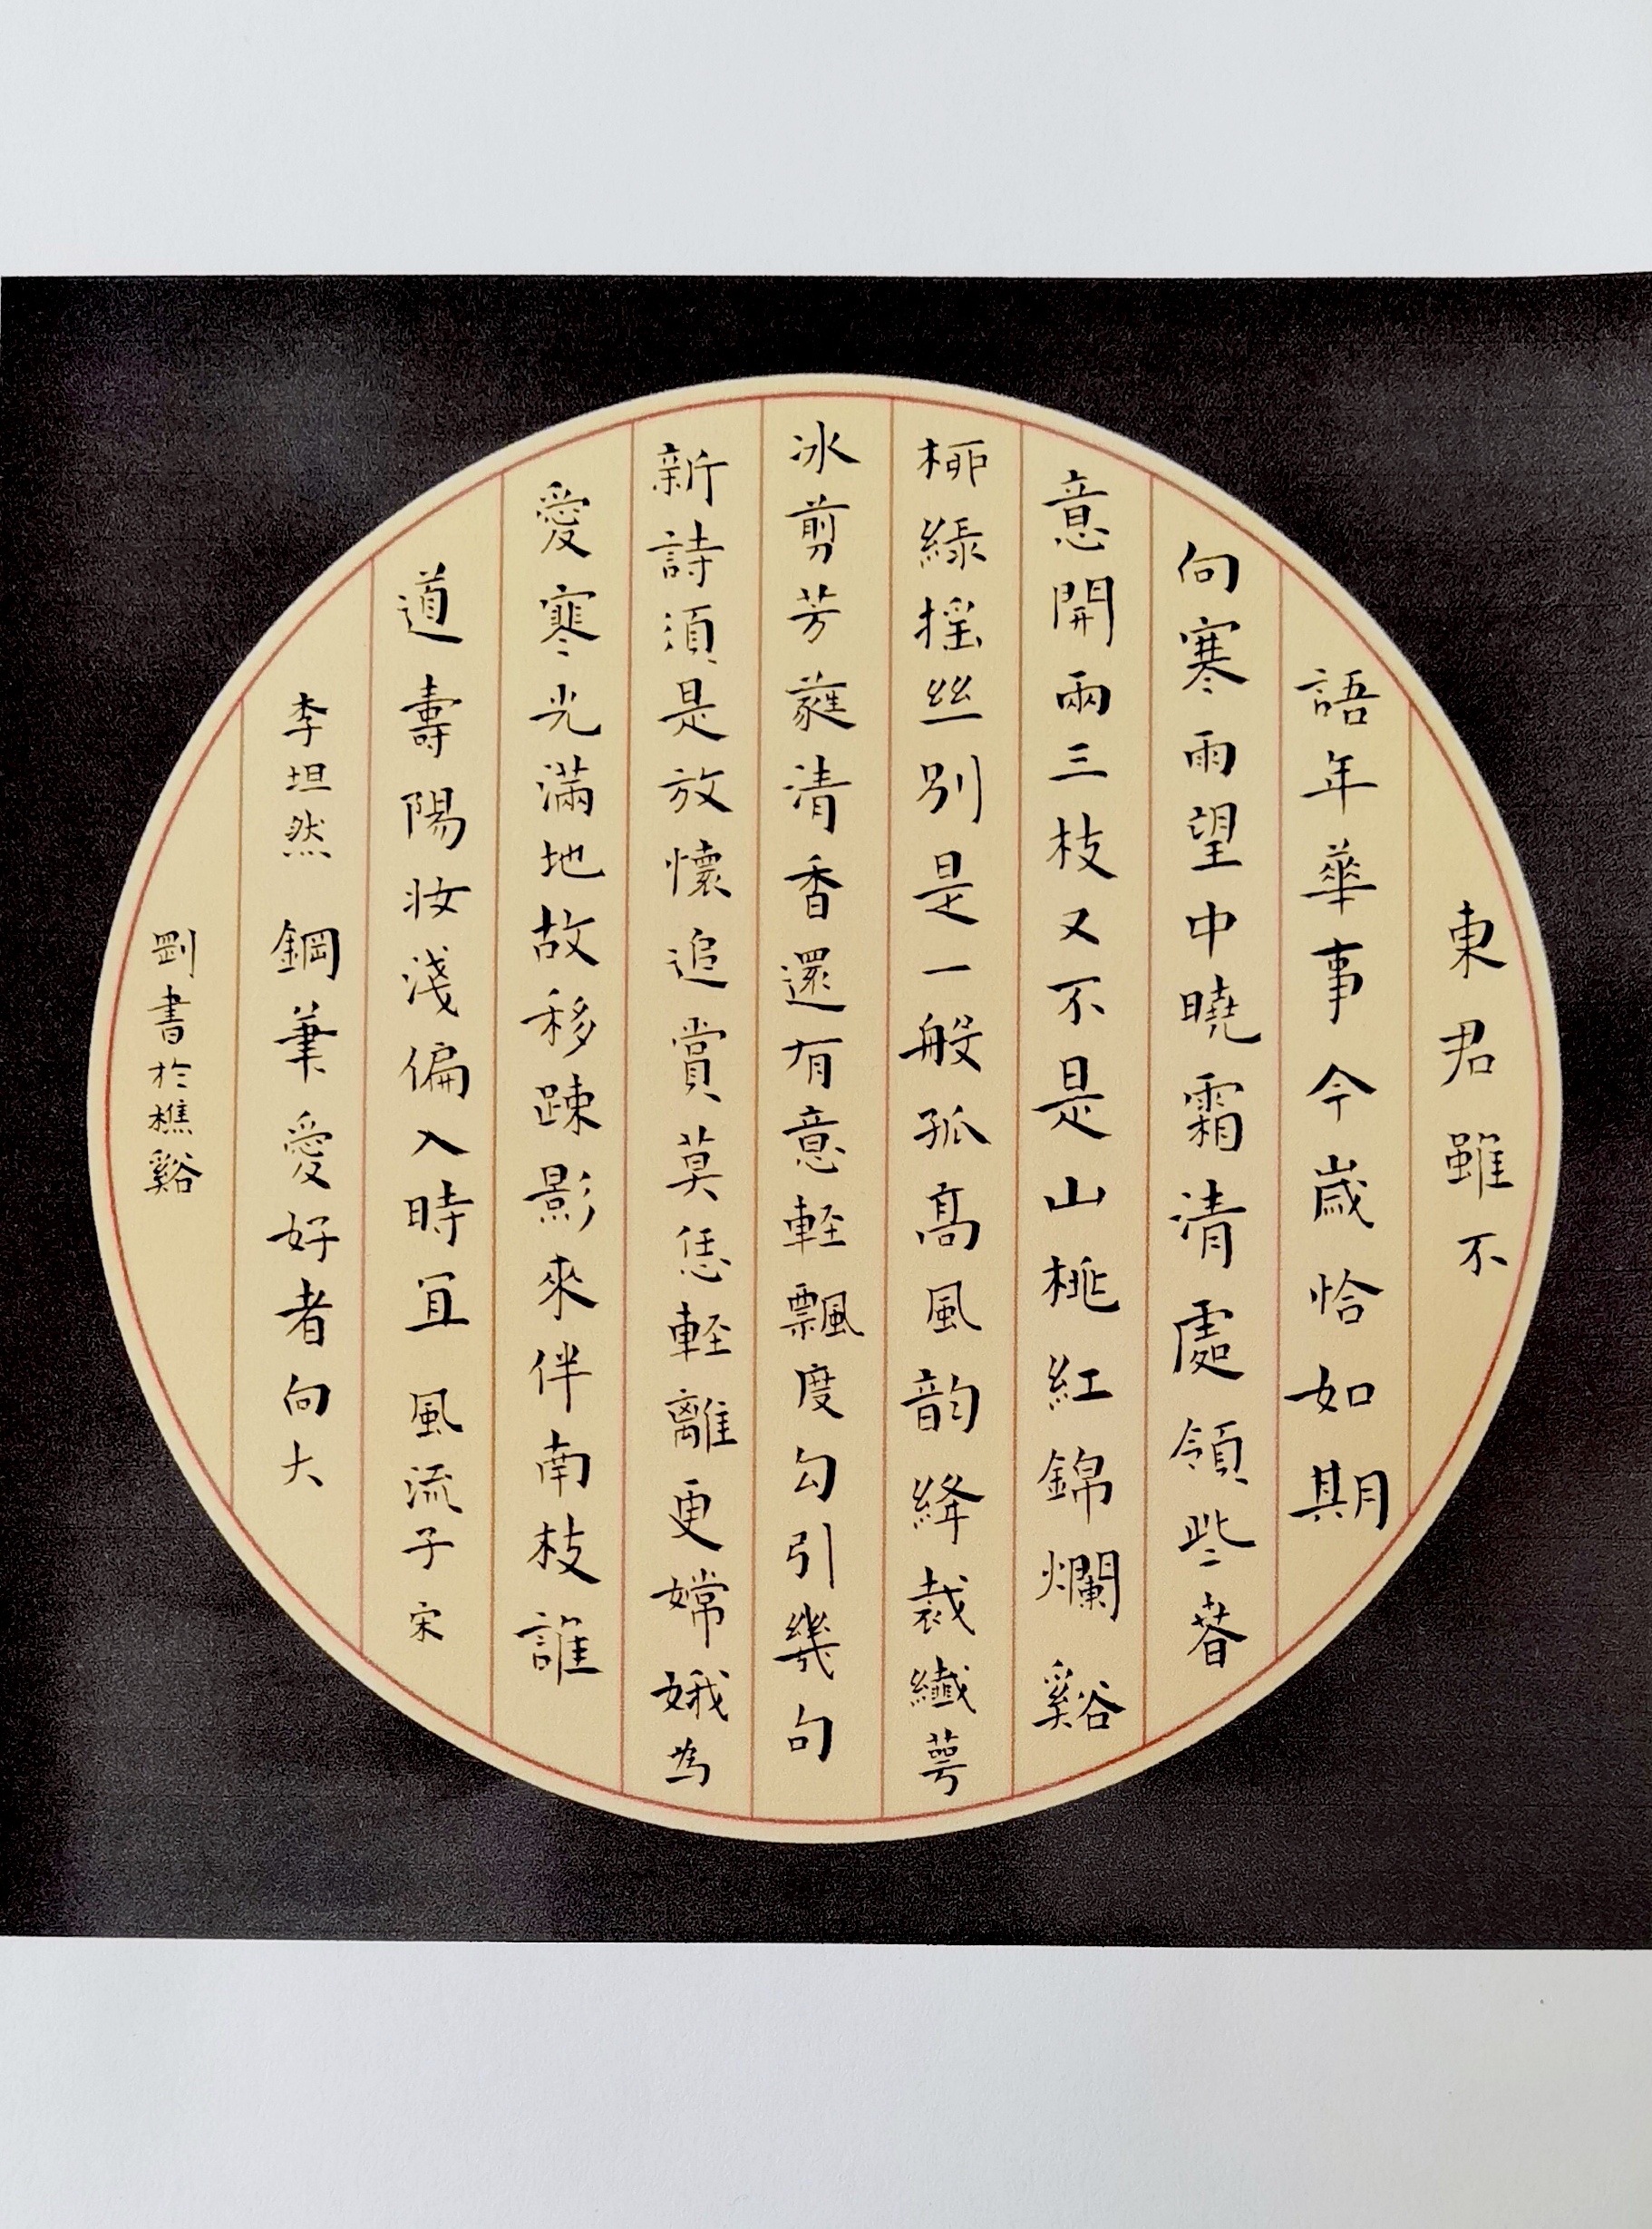 東君雖不
語年華事今歲恰如期
向寒雨望中曉霜清處領些春
意開兩三枝又不是山桃紅錦爛谿
柳綠搖絲別是一般孤高風韵絳裁纖萼
冰剪芳蕤清香還有意輕飄度勾引幾句
新詩須是放懷追賞莫恁輕離更嫦娥為
愛寒光滿地故移踈影來伴南枝誰
道壽陽妝淺偏入時宜 風流子 宋
李坦然 鋼筆愛好者向大
剛書於樵谿